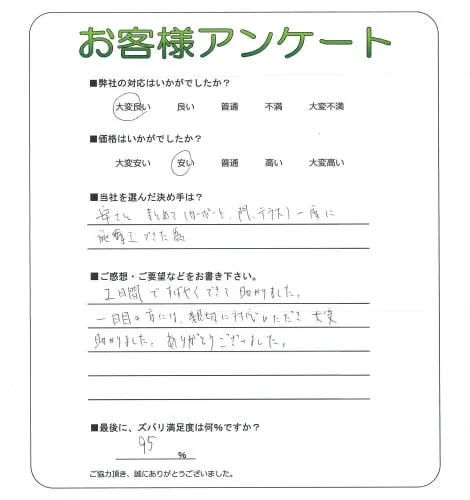 お客様アンケート
■弊社の対応はいかがでしたか？
大変良い 良い 普通 不満 大変不満
■価格はいかがでしたか？
大変安い 安い 普通 高い 大変高い
■当社を選んだ決め手は？
安さと まとめて(カーポート、門、テラス)一度に
施工できた為
■ご感想・ご要望などをお書き下さい。
2日間ですばやくできて助かりました。
一日目の方には、親切に対応いただき 大変
助かりました。ありがとうございました。
■最後に、ズバリ満足度は何%ですか？
95
%
ご協力頂き、誠にありがとうございました。